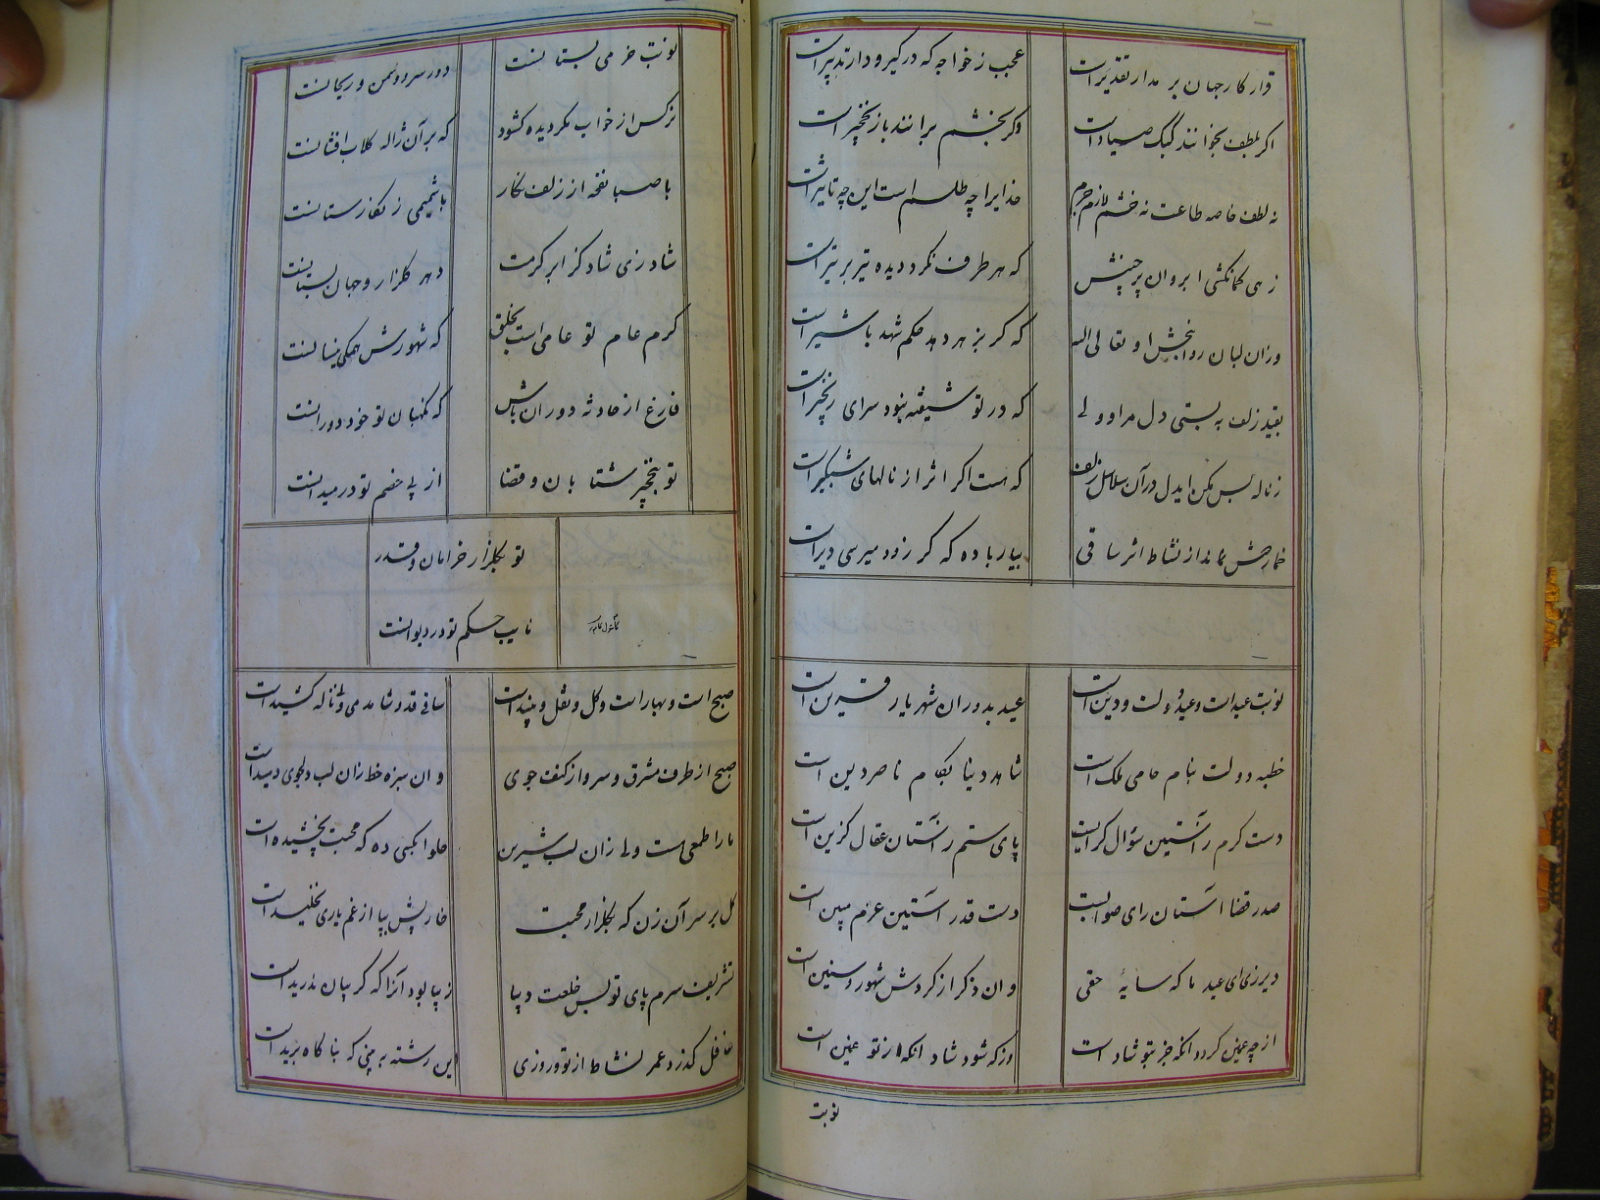 قرار کار جهان بر مدار تقدیر است
عجب ز خواجه که در گیر و دار تدبیر است
اگر بلطف بخوانند کبک صیاد است
وگر بخشم برانند باز نخجیر است
نه لطف خاصه طاعت نه خشم لازم جرم
خدایرا چه طلسم است این چه تاثیر است
زهی کمانکشی ابروان پرچینش
که هر طرف نگرد دیده تیر بر تیر است
وزان لبان روانبخش او تعالی الله
که گر بزهر دهد حکم شهد با شیر است
بقید زلف به بستی دل مرا و ولی
که در تو شیفته نبود سزای زنجیر است
ز ناله بس مکن ایدل در آن سلاسل زلف
که هست اگر اثر از نالهای شبگیر است
خمار خش نماند از نشاط اثر ساقی
بیار باده که گر زود میرسی دیر است
نوبت عید است و عید دولت و دین است
عید بدوران شهریار قرین است
خطبه دولت بنام حامی ملک است
شاهد دنیا بکام ناصر دین است
دست کرم راستین سؤال گرایست
پای ستم راستان عقال گزین است
صدر قضا آستان رای صوابست
دست قدر آستین عزم مبین است
دیر زی ای عید ما که سایهٔ حقی
وان دگر از گردش شهور و سنین است
از چه غمین گردد آنکه جز بتو شاد است
وز که شود شاد آنکه از تو غمین است
نوبت
نوبت خرمی بستانست
دور سرو و سمن و ریحانست
نرگس از خواب مگر دیده گشود
که بر آن ژاله گلاب افشانست
با صبا نفحه از زلف نگار
یا شمیمی ز نگارستانست
شاد زی شاد کز ابر کرمت
دهر گلزار و جهان بستانست
کرم عام تو عامی است بخلق
که شهورش همگی نیسانست
فارغ از حادثه دوران باش
که نگهبان تو خود دورانست
تو بنخجیر شتابان و قضا
از پی خصم تو در میدانست
تو بگلزار خرامان و قدر
نایب حکم تو در دیوانست
صبح است و بهار است و گل و نقل و نبیذ است
ساقی قد و شاهد می و نی ناله کشیده است
صبح از طرف مشرق و سرو از کنف جوی
وان سبزه خط زان لب دلجوی دمیده است
ما را طمعی هست ولی زان لب شیرین
حلوا بکسی ده که محبت نچشیده است
گل بر سر آن زن که بگلزار محبت
خاریش بپا از غم یاری نخلیده است
تشریف سرم پای تو بس خلعت دیبا
زیبا بود آنرا که گریبان ندریده است
غافل گذرد عمر نشاط از تو و روزی
این رشته به بینی که بناگاه بریده است